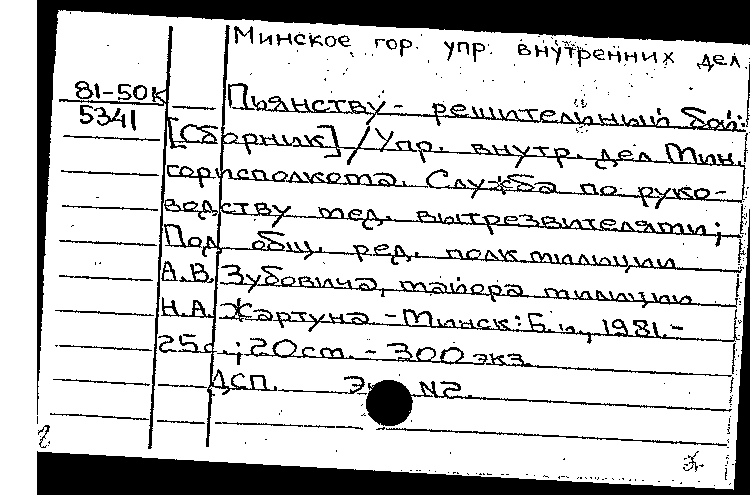 Минское гор. упр. внутренних дел.
81-50К Пьянству - решительный бой:
5341 [Сборник] / Упр. внутр. дел Мин.
горисполкома. Служба по руко-
водству мед. вытрезвителями;
Под общ. ред. полк. милиции
А.В. Зубовича, майора милиции
Н.А. Жартуна. - Минск: Б. и., 1981. -
25 с.; 20 см. - 300 экз.
ДСП. N2.